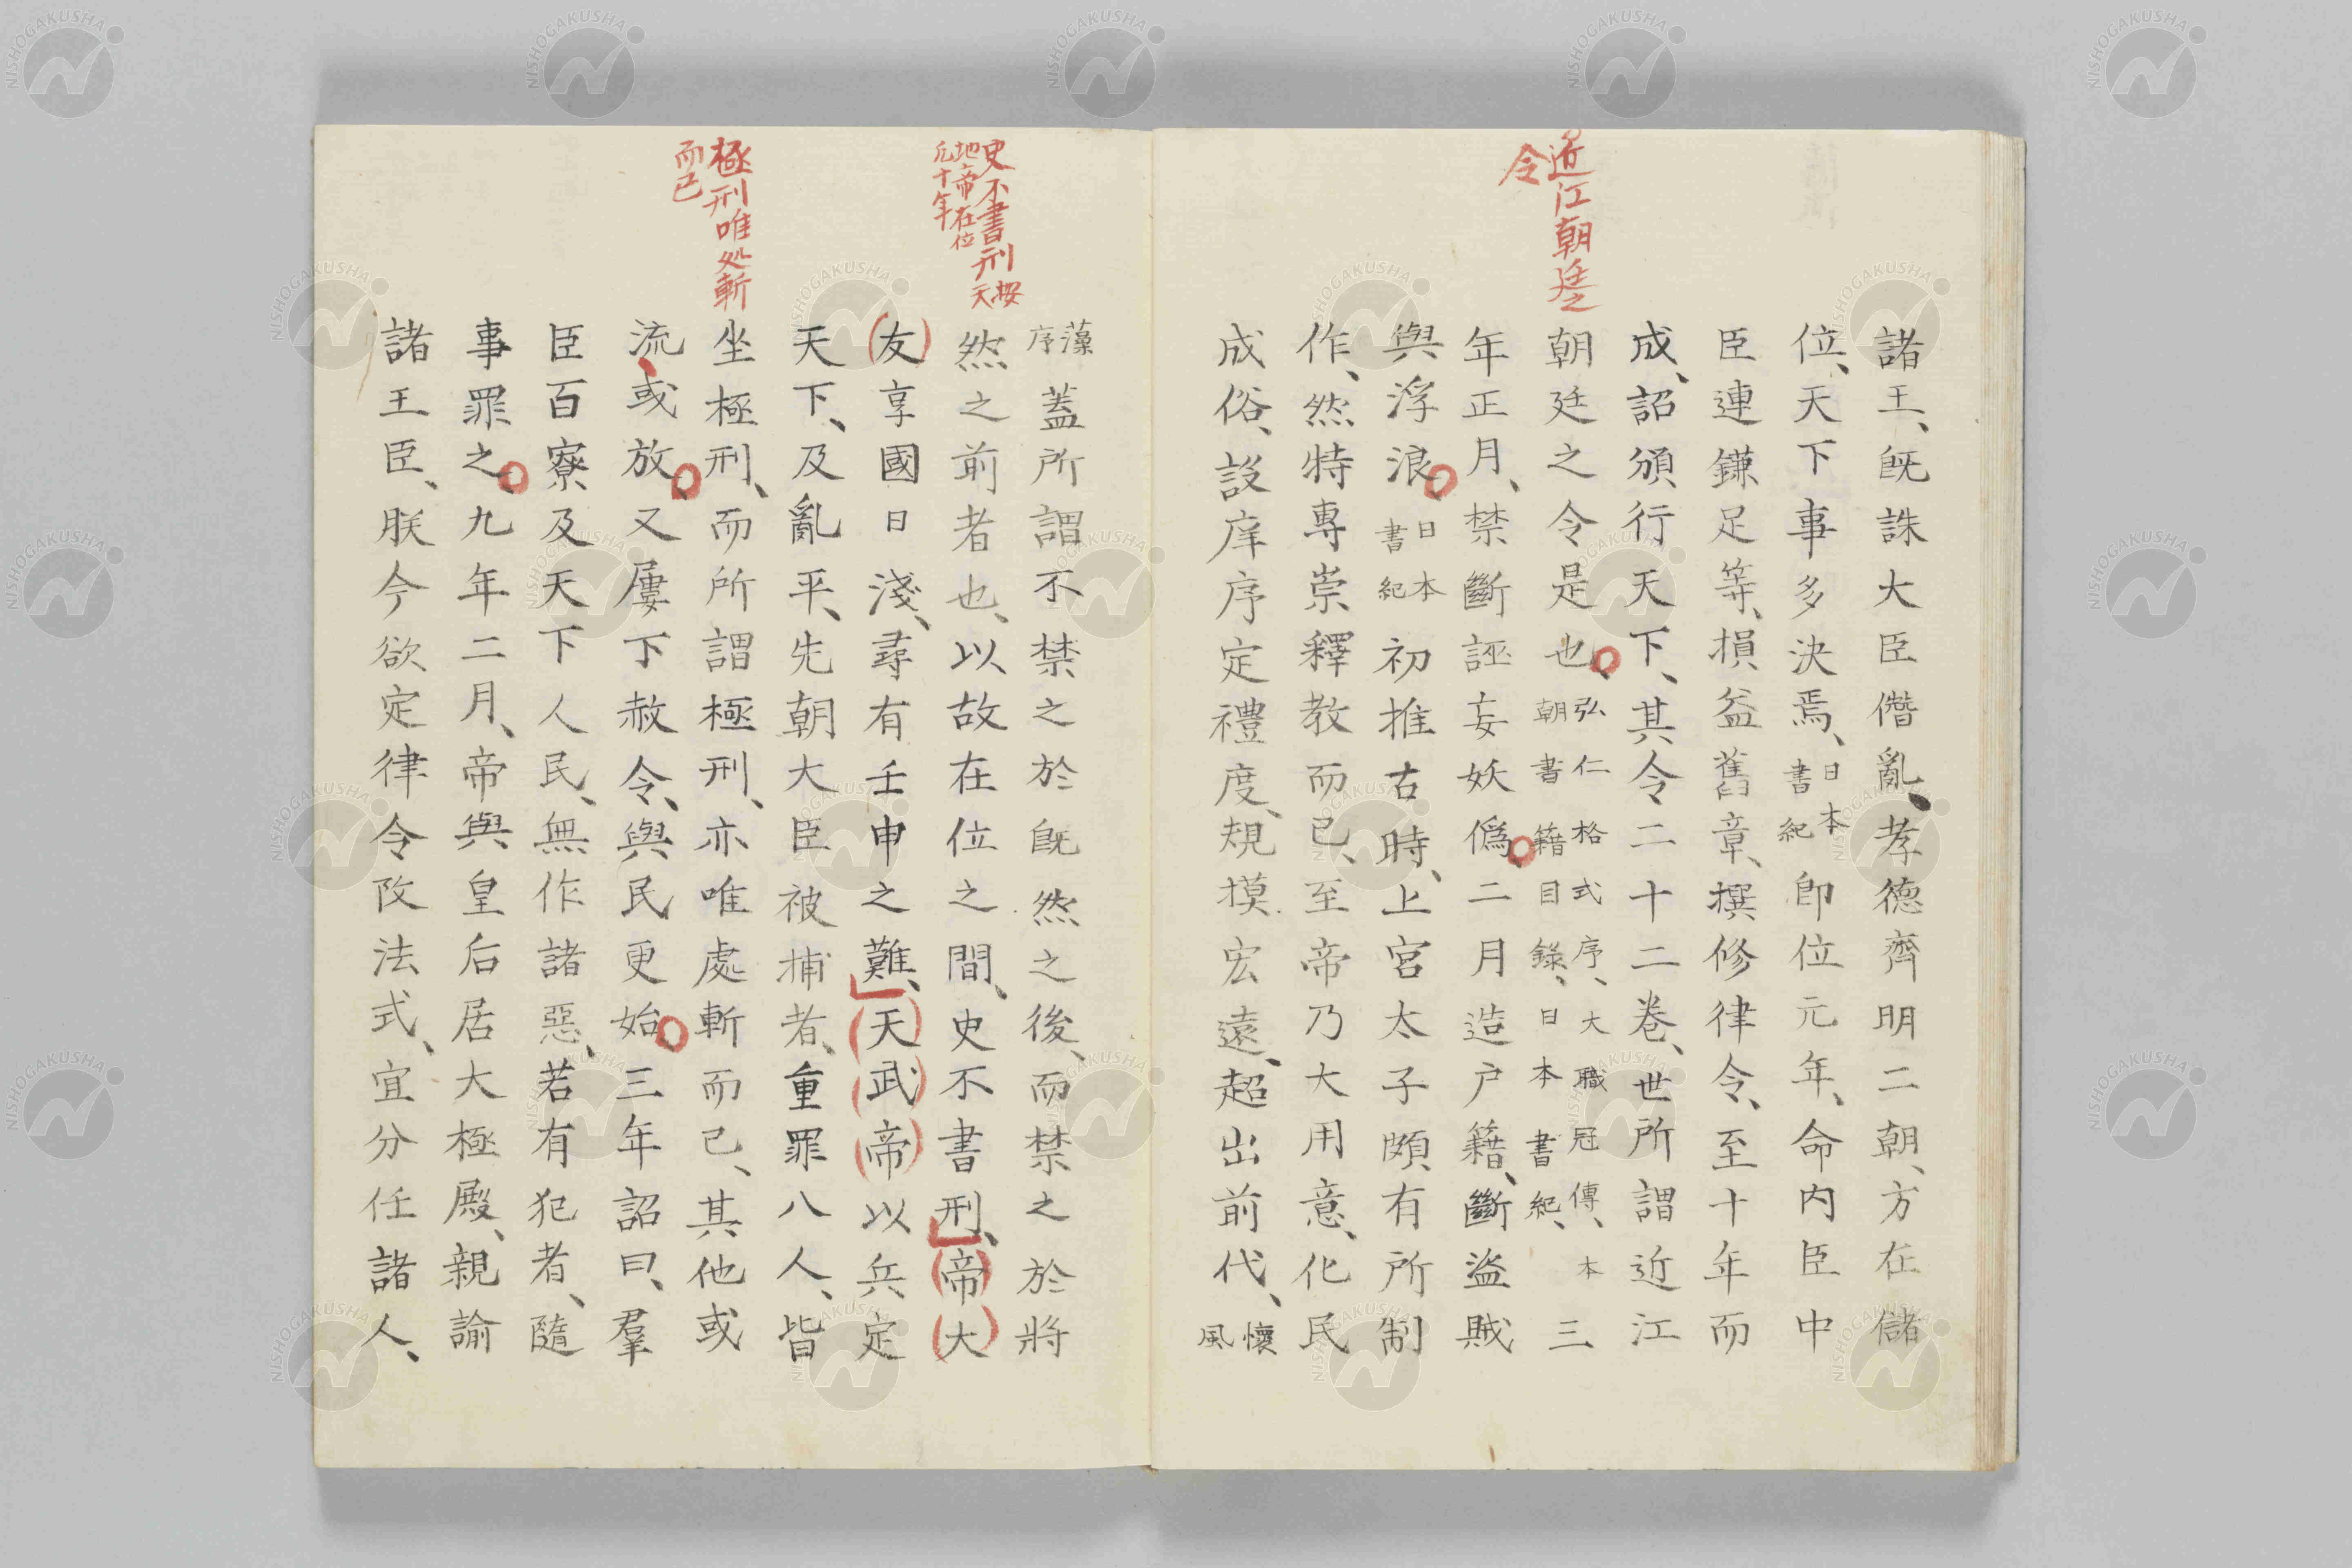 近江朝廷之
令
諸王、既誅大臣僭亂、孝德齊明二朝、方在儲
位、天下事多決焉、日本書紀即位元年、命内臣中
臣連鎌足等、損益舊章、撰修律令、至十年而
成、詔頒行天下、其令二十二卷、世所謂近江
朝廷之令是也、弘仁格式序、大職冠傳、本朝書籍目錄、日本書紀、三
年正月、禁斷誣妄妖僞、二月造戶籍、斷盜賊
與浮浪、日本書紀初推古時、上宮太子頗有所制
作、然特專崇釋教而已、至帝乃大用意、化民
成俗、設庠序定禮度、規摸宏遠、超出前代、懷風
史不書刑 按天
地帝在位
凡十年
極刑唯処斬
而已
藻序蓋所謂不禁之於既然之後、而禁之於將
然之前者也、以故在位之間、史不書刑、帝大
友享國日淺、尋有壬申之難、天武帝以兵定
天下、及亂平、先朝大臣被捕者、重罪八人、皆
坐極刑、而所謂極刑、亦唯處斬而已、其他或
流、或放、又屢下赦令、與民更始、三年詔曰、羣
臣百寮及天下人民、無作諸惡、若有犯者、隨
事罪之、九年二月、帝與皇后居大極殿、親諭
諸王臣、朕今欲定律令改法式、宜分任諸人、